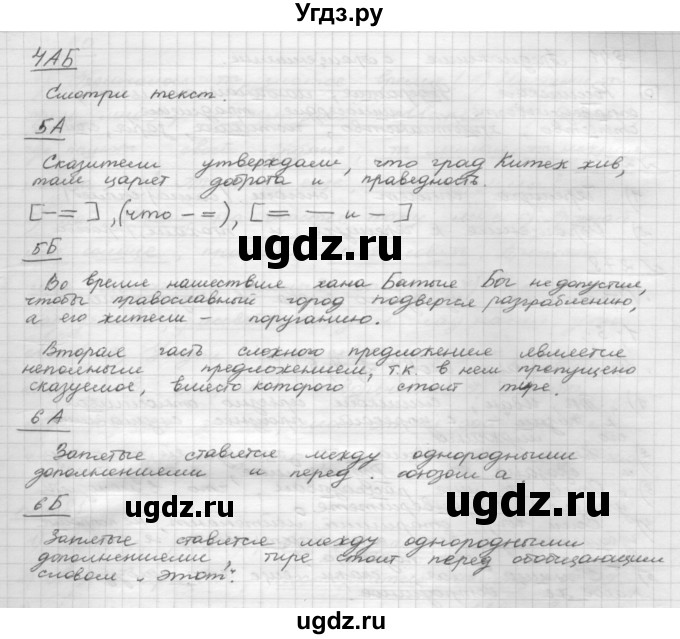 Угдз.ру
4АБ
Смотри текст.
5А
Сказители утверждают, что град Китеж жив,
там царит доброта и праведность.
[–=], (что –=), [= – и –]
5Б
Во время нашествия хана Батыя Бог не допустил,
чтобы православный город подвергся разграблению,
а его жители – поруганию.
Вторая часть сложного предложения является
неполным предложением, т.к. в нем пропущено
сказуемое, вместо которого стоит тире.
6А
Запятые ставятся между однородными
дополнениями и перед союзом а
6Б
Запятые ставятся между однородными
дополнениями, тире стоит перед обобщающим
словом "этот".
ugdz.ru
ugdz.ru
ugdz.ru
ugdz.ru
ugdz.ru